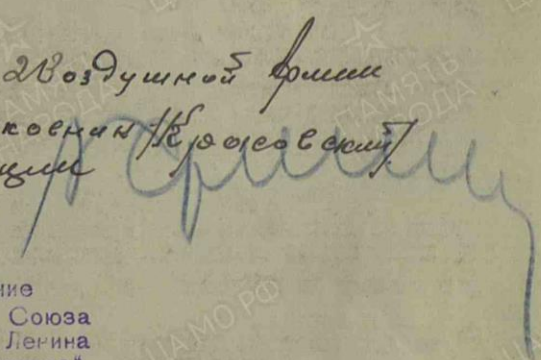 2 Воздушной Армии
/Красовский/
ции
ние
Союза
Ленина
ПАМЯТЬ НАРОДА
ЦАМО РФ